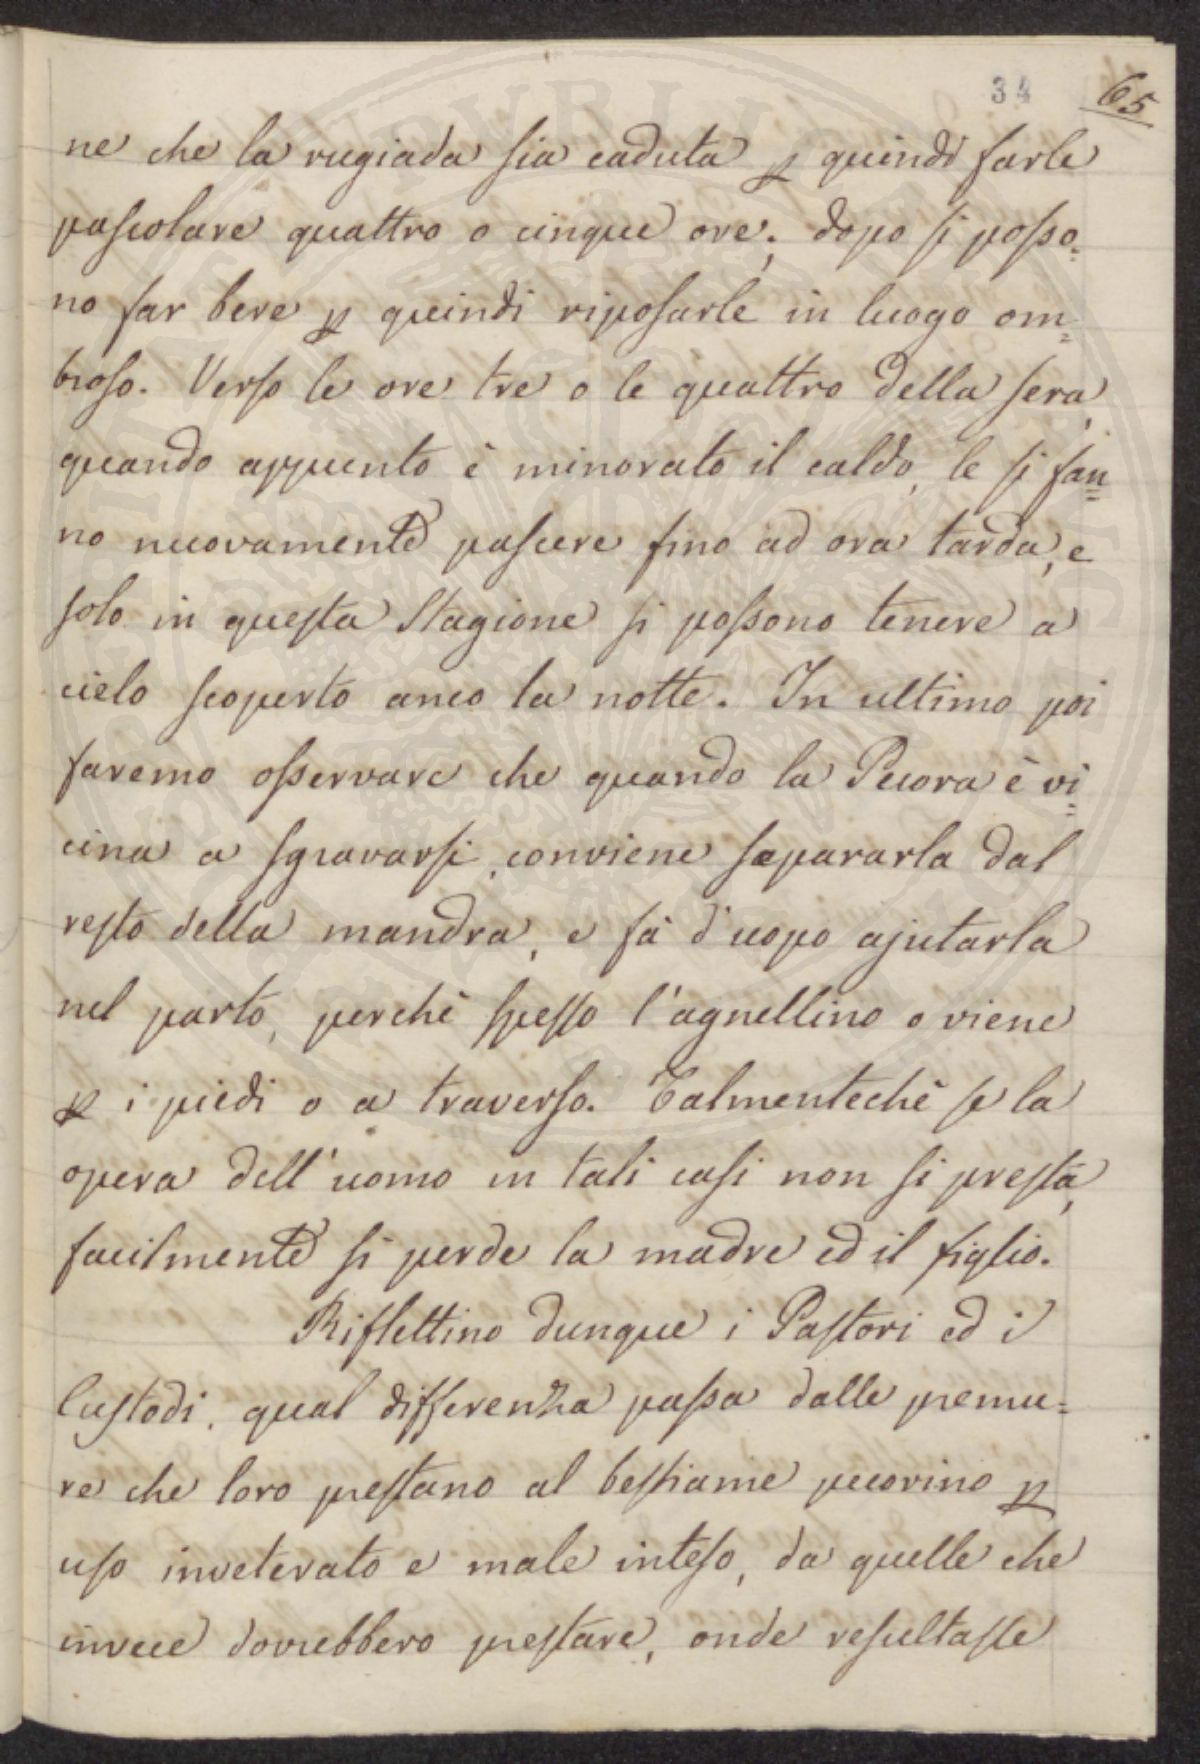 34 65
ne che la rugiada sia caduta p quindi farle
pascolare quattro o cinque ore; dopo si posso=
no far bere p quindi riposarle in luogo om=
broso. Verso le ore tre o le quattro della sera,
quando appunto è minorato il caldo, le si fan=
no nuovamente pascere fino ad ora tarda, e
solo in questa Stagione si possono tenere a
cielo scoperto anco la notte. In ultimo poi
faremo osservare che quando la Pecora è vi=
cina a sgravarsi, conviene separarla dal
resto della mandra, e fà d'uopo ajutarla
nel parto, perchè spesso l'agnellino o viene
p i piedi o a traverso. Talmentechè se la
opera dell'uomo in tali casi non si presta,
facilmente si perde la madre ed il figlio.
Riflettino dunque i Pastori ed i
Custodi, qual differenza passa dalle premu=
re che loro prestano al bestiame pecorino p
uso inveterato e male inteso, da quelle che
invece dovrebbero prestare, onde resultasse